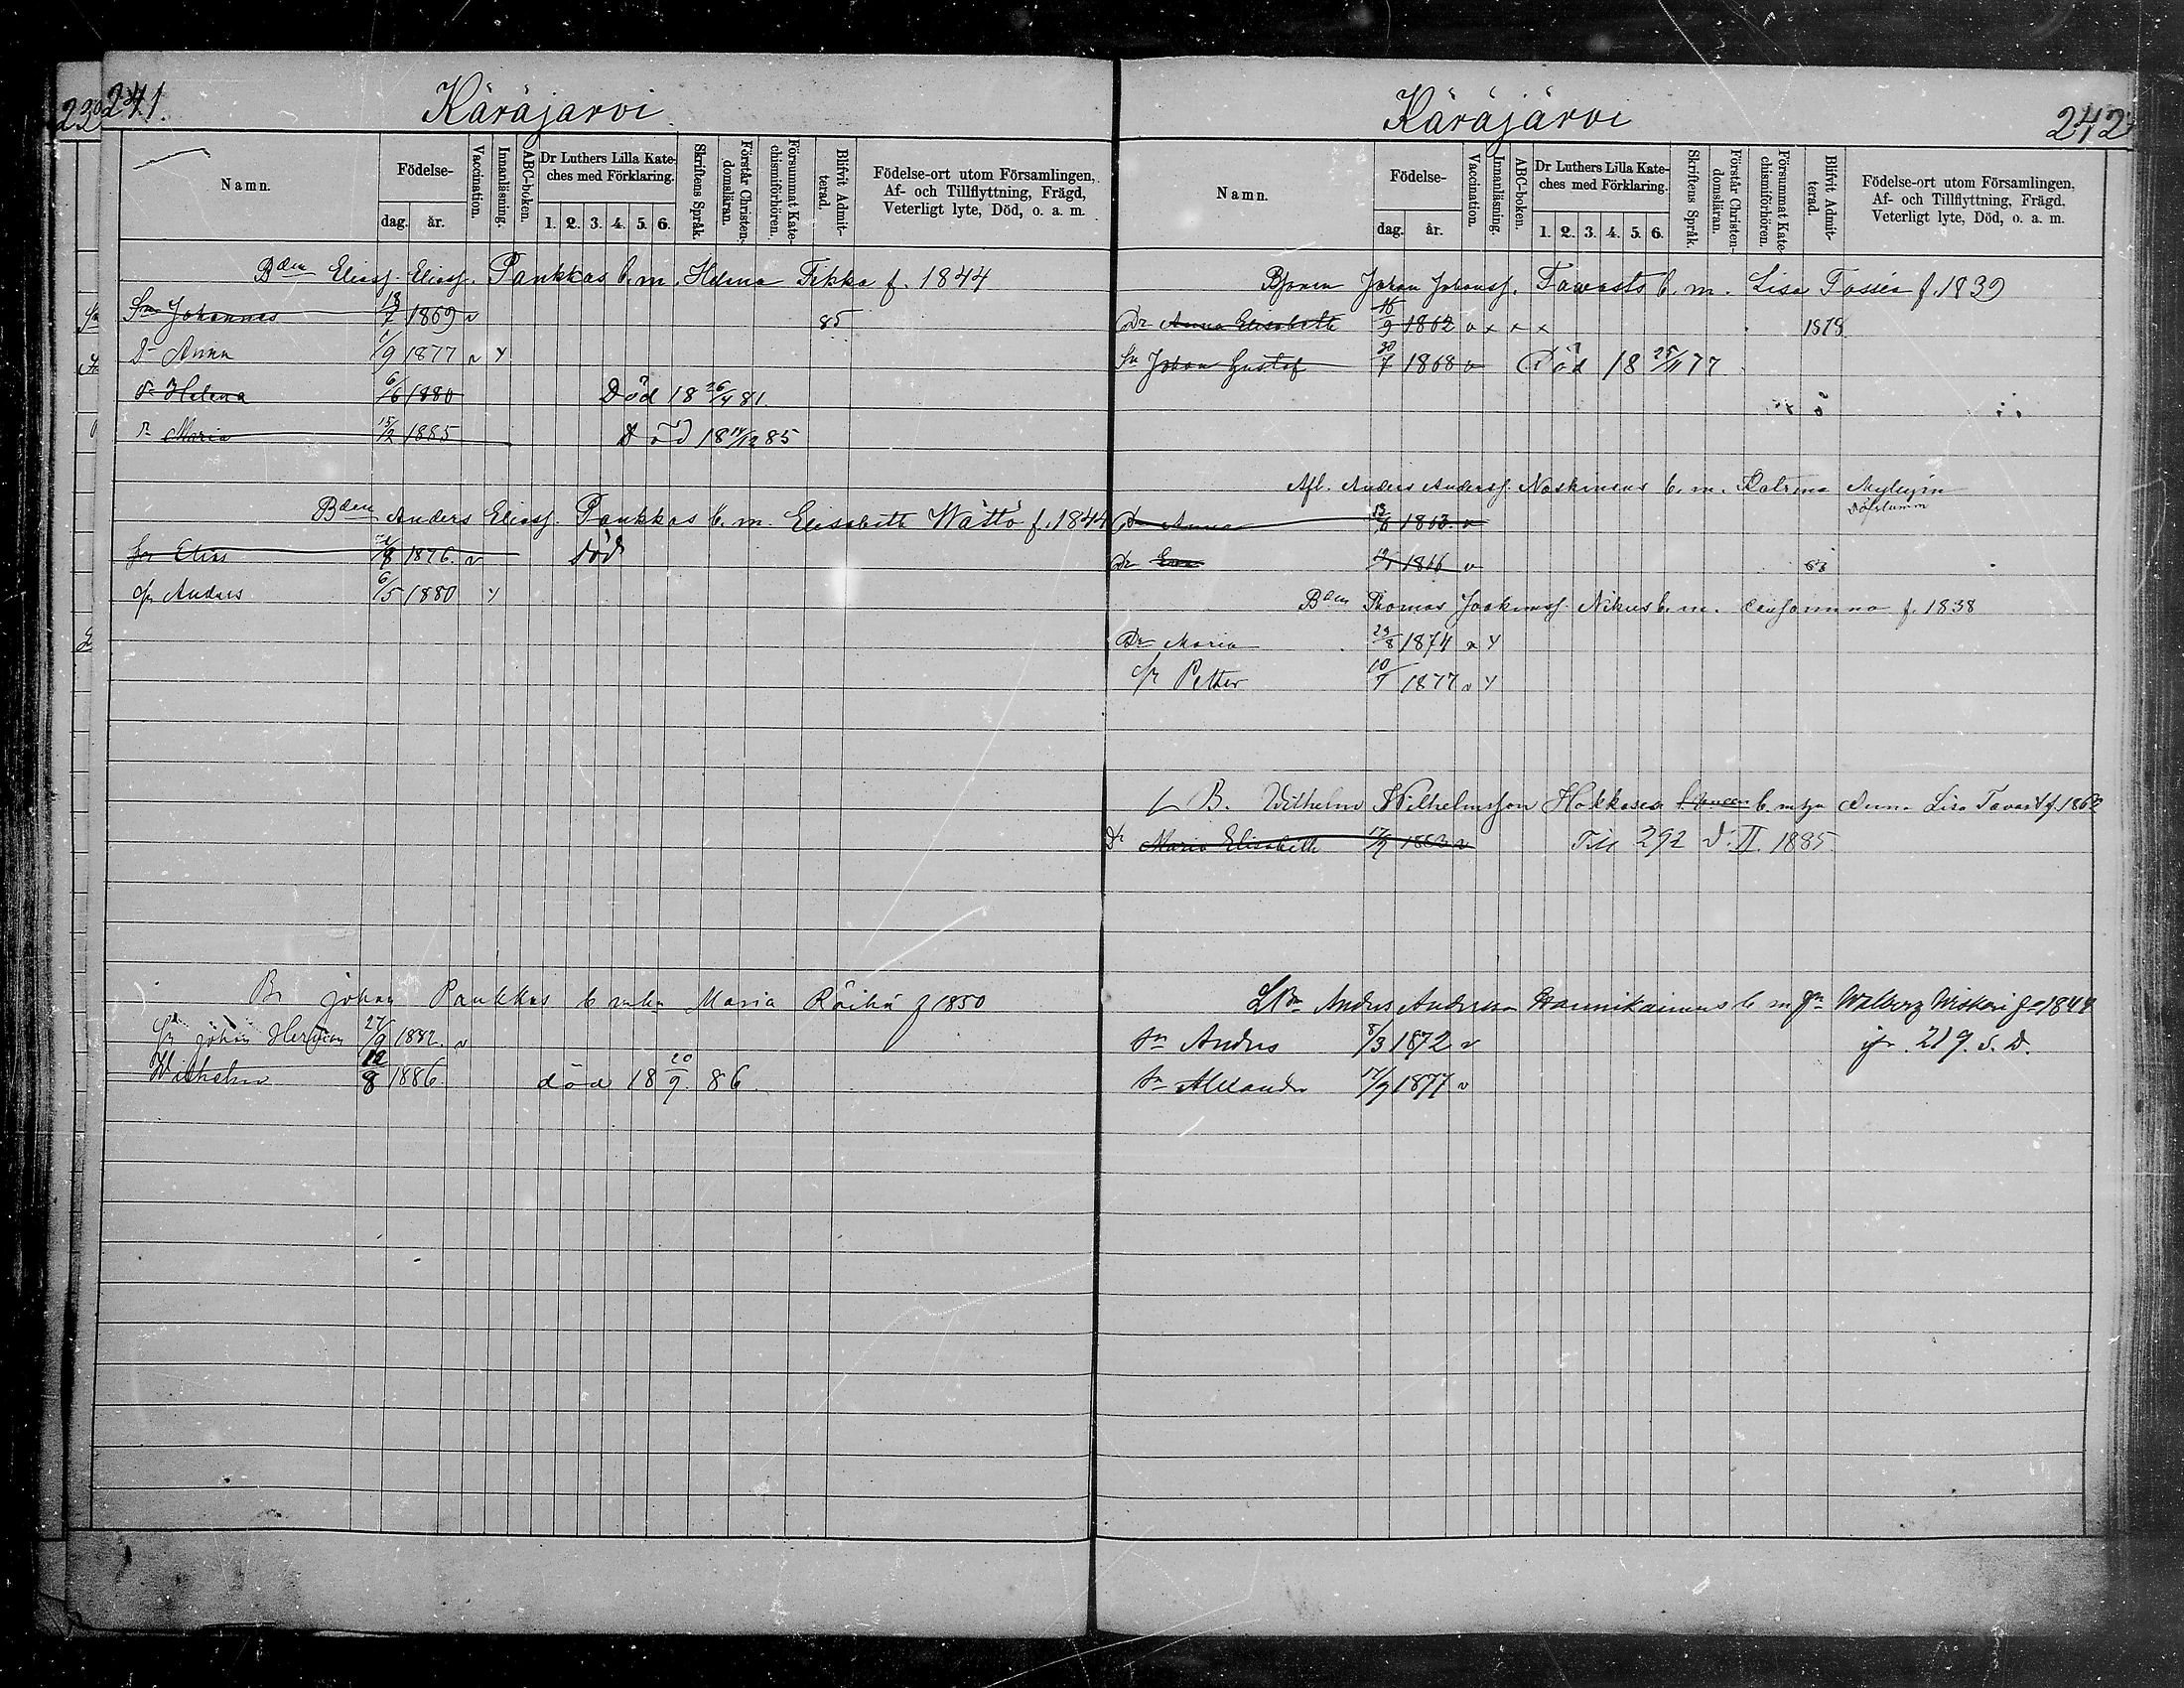 241.
Käräjärvi
Namn.
Födelse-
dag.
år.
Vaccination.
Innanläsning.
ABC-boken.
Dr Luthers Lilla Kate-
ches med Förklaring.
1. 2. 3. 4. 5. 6.
Skriftens Språk.
Förstår Christen-
domsläran.
Försummat Kate-
chismiförhören.
Blifvit Admit-
terad.
Födelse-ort utom Församlingen,
Af- och Tillflyttning, Frägd,
Veterligt lyte, Död, o. a. m.
Bden Eliass. Eliass. Paukkas b. m. Helena Tikka f. 1844
Sn Johannes 18/7 1869 v 85
Dr Anna 1/9 1877 v y
Dr Helena 6/6 1880 Död 18 26/4 81.
Dr Maria 15/2 1885 Död 18 14/12 85
Bden Anders Eliass. Paukkas b. m. Elisabeth Wättö f. 1844
Sn Elias /8 1876. v död
Sn Anders 6/5 1880 y
Bn Johan Paukkas b m Maria Räihä f 1850
Sn Johan Herman 27/9 1882. v
Wilhelm 12/8 1886. död 18 20/9 86
Käräjärvi
242
Namn.
Födelse-
dag.
år.
Vaccination.
Innanläsning.
ABC-boken.
Dr Luthers Lilla Kate-
ches med Förklaring.
1. 2. 3. 4. 5. 6.
Skriftens Språk.
Förstår Christen-
domsläran.
Försummat Kate-
chismiförhören.
Blifvit Admit-
terad.
Födelse-ort utom Församlingen,
Af- och Tillflyttning, Frägd,
Veterligt lyte, Död, o. a. m.
Johan Johanss. Tawasts b. m. Lisa Tossia f. 1839
Dr Anna Elisabeth 16/9 1862 v x x x 1878
Sn Johan Gustaf 30/7 1868 v Död 18 25/11 77
Afl. Anders Anderss. Naskinens b. m. Katrina
Döfstumm
Dr Anna 13/8 1863. v
Dr Eva 1866 v
Bden Thomas Joakimss. Nikus b. m. f. 1838
Dr Maria 23/8 1874 v y
Sn Petter 10/7 1877 v y
B. Wilhelm Wilhelmsson Hokkasen b. m Anna Lisa Tavast f. 1862
Dr Maria Elisabeth 17/9 v Till 292 d. II. 1885.
LBn Anders Andersson Hannikainens b m Walborg f 1844
Sn Anders 8/3 1872 v 219. s. D.
Sn Alexander 17/9 1877 v